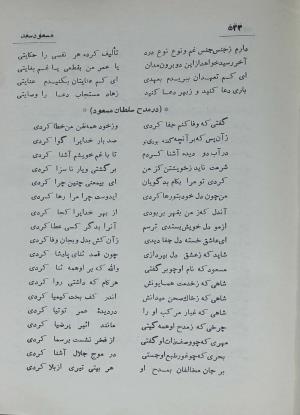 ۵۴۴
مسعود سعد
دارم ز جنس جنس غم و نوع نوع درد
تألیف کرده هر نفسی را حکایتی
آخر رسید خواهد از این دو برون مدان
یا عمر من بقطعی یا غم بغایتی
ای کم تعهدان بپریدم بعهدی
ای کم عنایتان بکنیدم عنایتی
یاری دعا کنید و زبهر دعا کنید
زهاد مستجاب دعا را وصایتی
(در مدح سلطان مسعود)
گفتی که وفا کنم جفا کردی
وز خود همه ظن من خطا کردی
زآن پس که بر آنچه گفته بودی
صد بار خدایرا گوا کردی
در آب دو دیده آشنا کردم
تا با غم خویشم آشنا کردی
شرمت ناید ز خویشتن کز من
برگشتی و یار ناسزا کردی
کردی تو مرا بکام بدگویان
ای بیمعنی چنین چرا کردی
من چون دل خود بتو رها کردم
ایدوست چرا مرا رها کردی
آندل که ز من بقهر بربودی
از بهر خدایرا کجا کردی
از مو دل خویش بستدی ترسم
آنرا بدگر کسی عطا کردی
ای عاشق خسته دل جفا دیدی
زآن کش بدل و بجان وفا کردی
ای شعر ز عشق دل بپردازی
چون قصد ثنای پادشا کردی
مسعود که نام او چو برگفتی
والله که بر او همه ثنا کردی
شاهی که ز خدمت همایونش
هر کام که داشتی روا کردی
شاهی که ز خاک صحن میدانش
اندر کف بخت کیمیا کردی
شاهی که غبار مرکب او را
در دیده عمر توتیا کردی
چرخی که ز مدح او همه گیتی
مانند اثیر پر ضیا کردی
مهری که چو وصف ذات او گفتی
از فخر نشست بر سما کردی
بحری که چو غور طبع او جستی
در موج جلال آشنا کردی
بر جان مخالفان بمدح او
هر بیتی تیری از بلا کردی